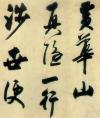 黄華山
真隱一行
涉世便